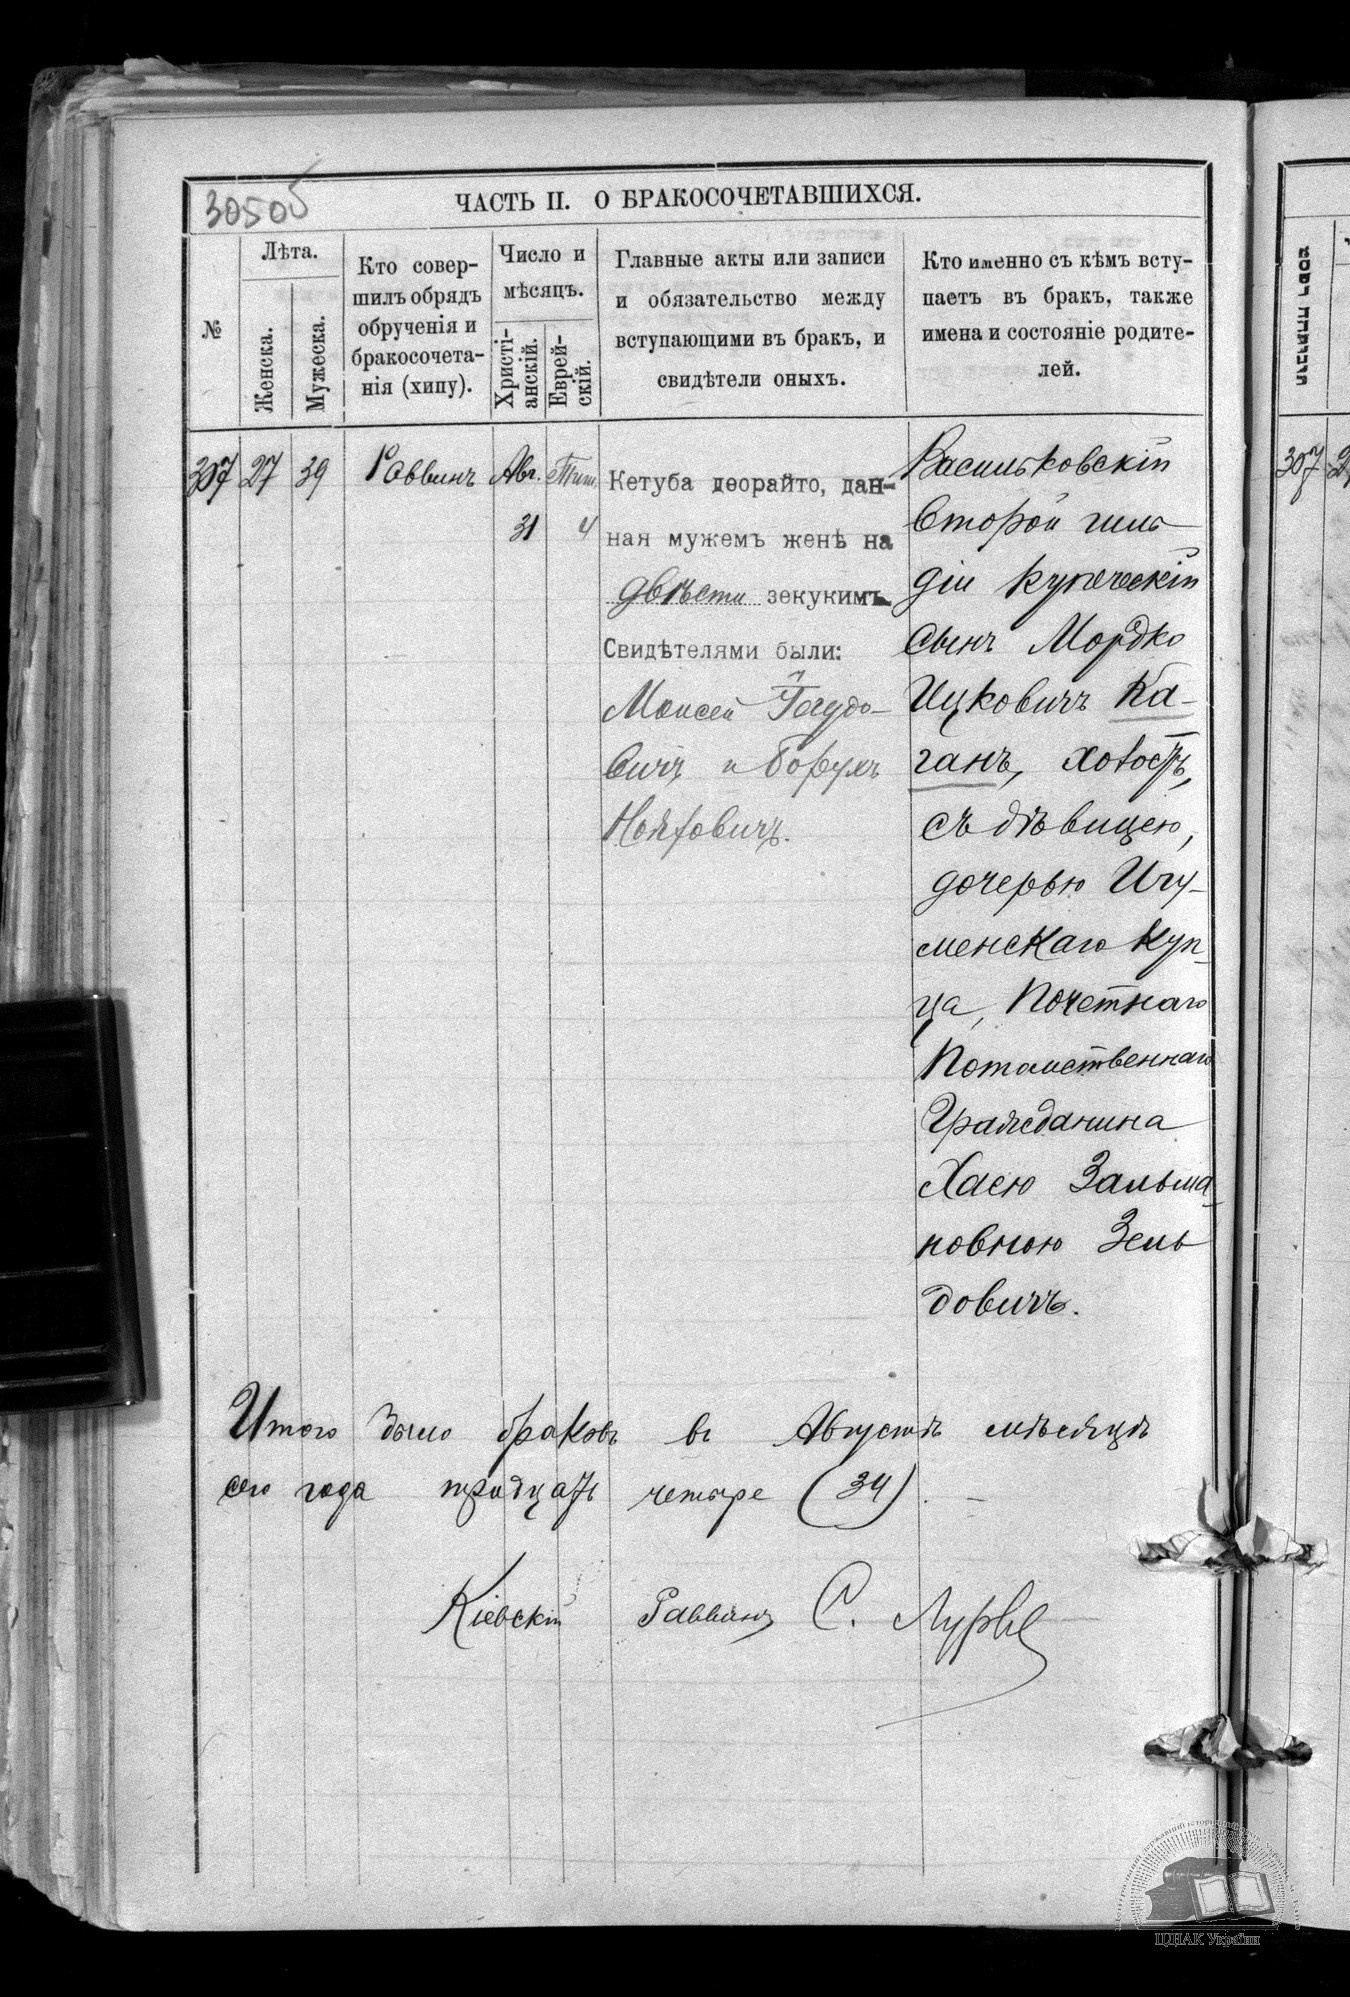 30505
ЧАСТЬ II. О БРАКОСОЧЕТАВШИХСЯ.
№
Лѣта.
Женска.
Мужеска.
Кто совер-
шилъ обрядъ
обрученія и
бракосочета-
нія (хипу).
Число и
мѣсяцъ.
Христі-
анскій.
Еврей-
скій.
Главные акты или записи
и обязательство между
вступающими въ бракъ, и
свидѣтели оныхъ.
Кто именно съ кѣмъ всту-
паетъ въ бракъ, также
имена и состояніе родите-
лей.
307 27 39 Раввинъ Авг. Тиш.
31 4
Кетуба деорайто, дан-
ная мужемъ женѣ на
двѣсти зекукимъ
Свидѣтелями были:
Моисей Іегудо-
вичъ и Борухъ
Васильковскій
Второй гиль
діи купеческій
сынъ Мордко
Ицковичъ Ка-
ганъ, холостъ,
съ дѣвицею,
дочерью Игу-
менскаго Куп-
ца, Почетнаго
Потомственнаго
Гражданина
Хаею Зальма-
новною Зель
довичъ.
Итого было браковъ въ Августѣ мѣсяцѣ
сего года тридцать четыре (34). —
Кіевскій Раввинъ С. Лурье
307 2
ЦДІАК України